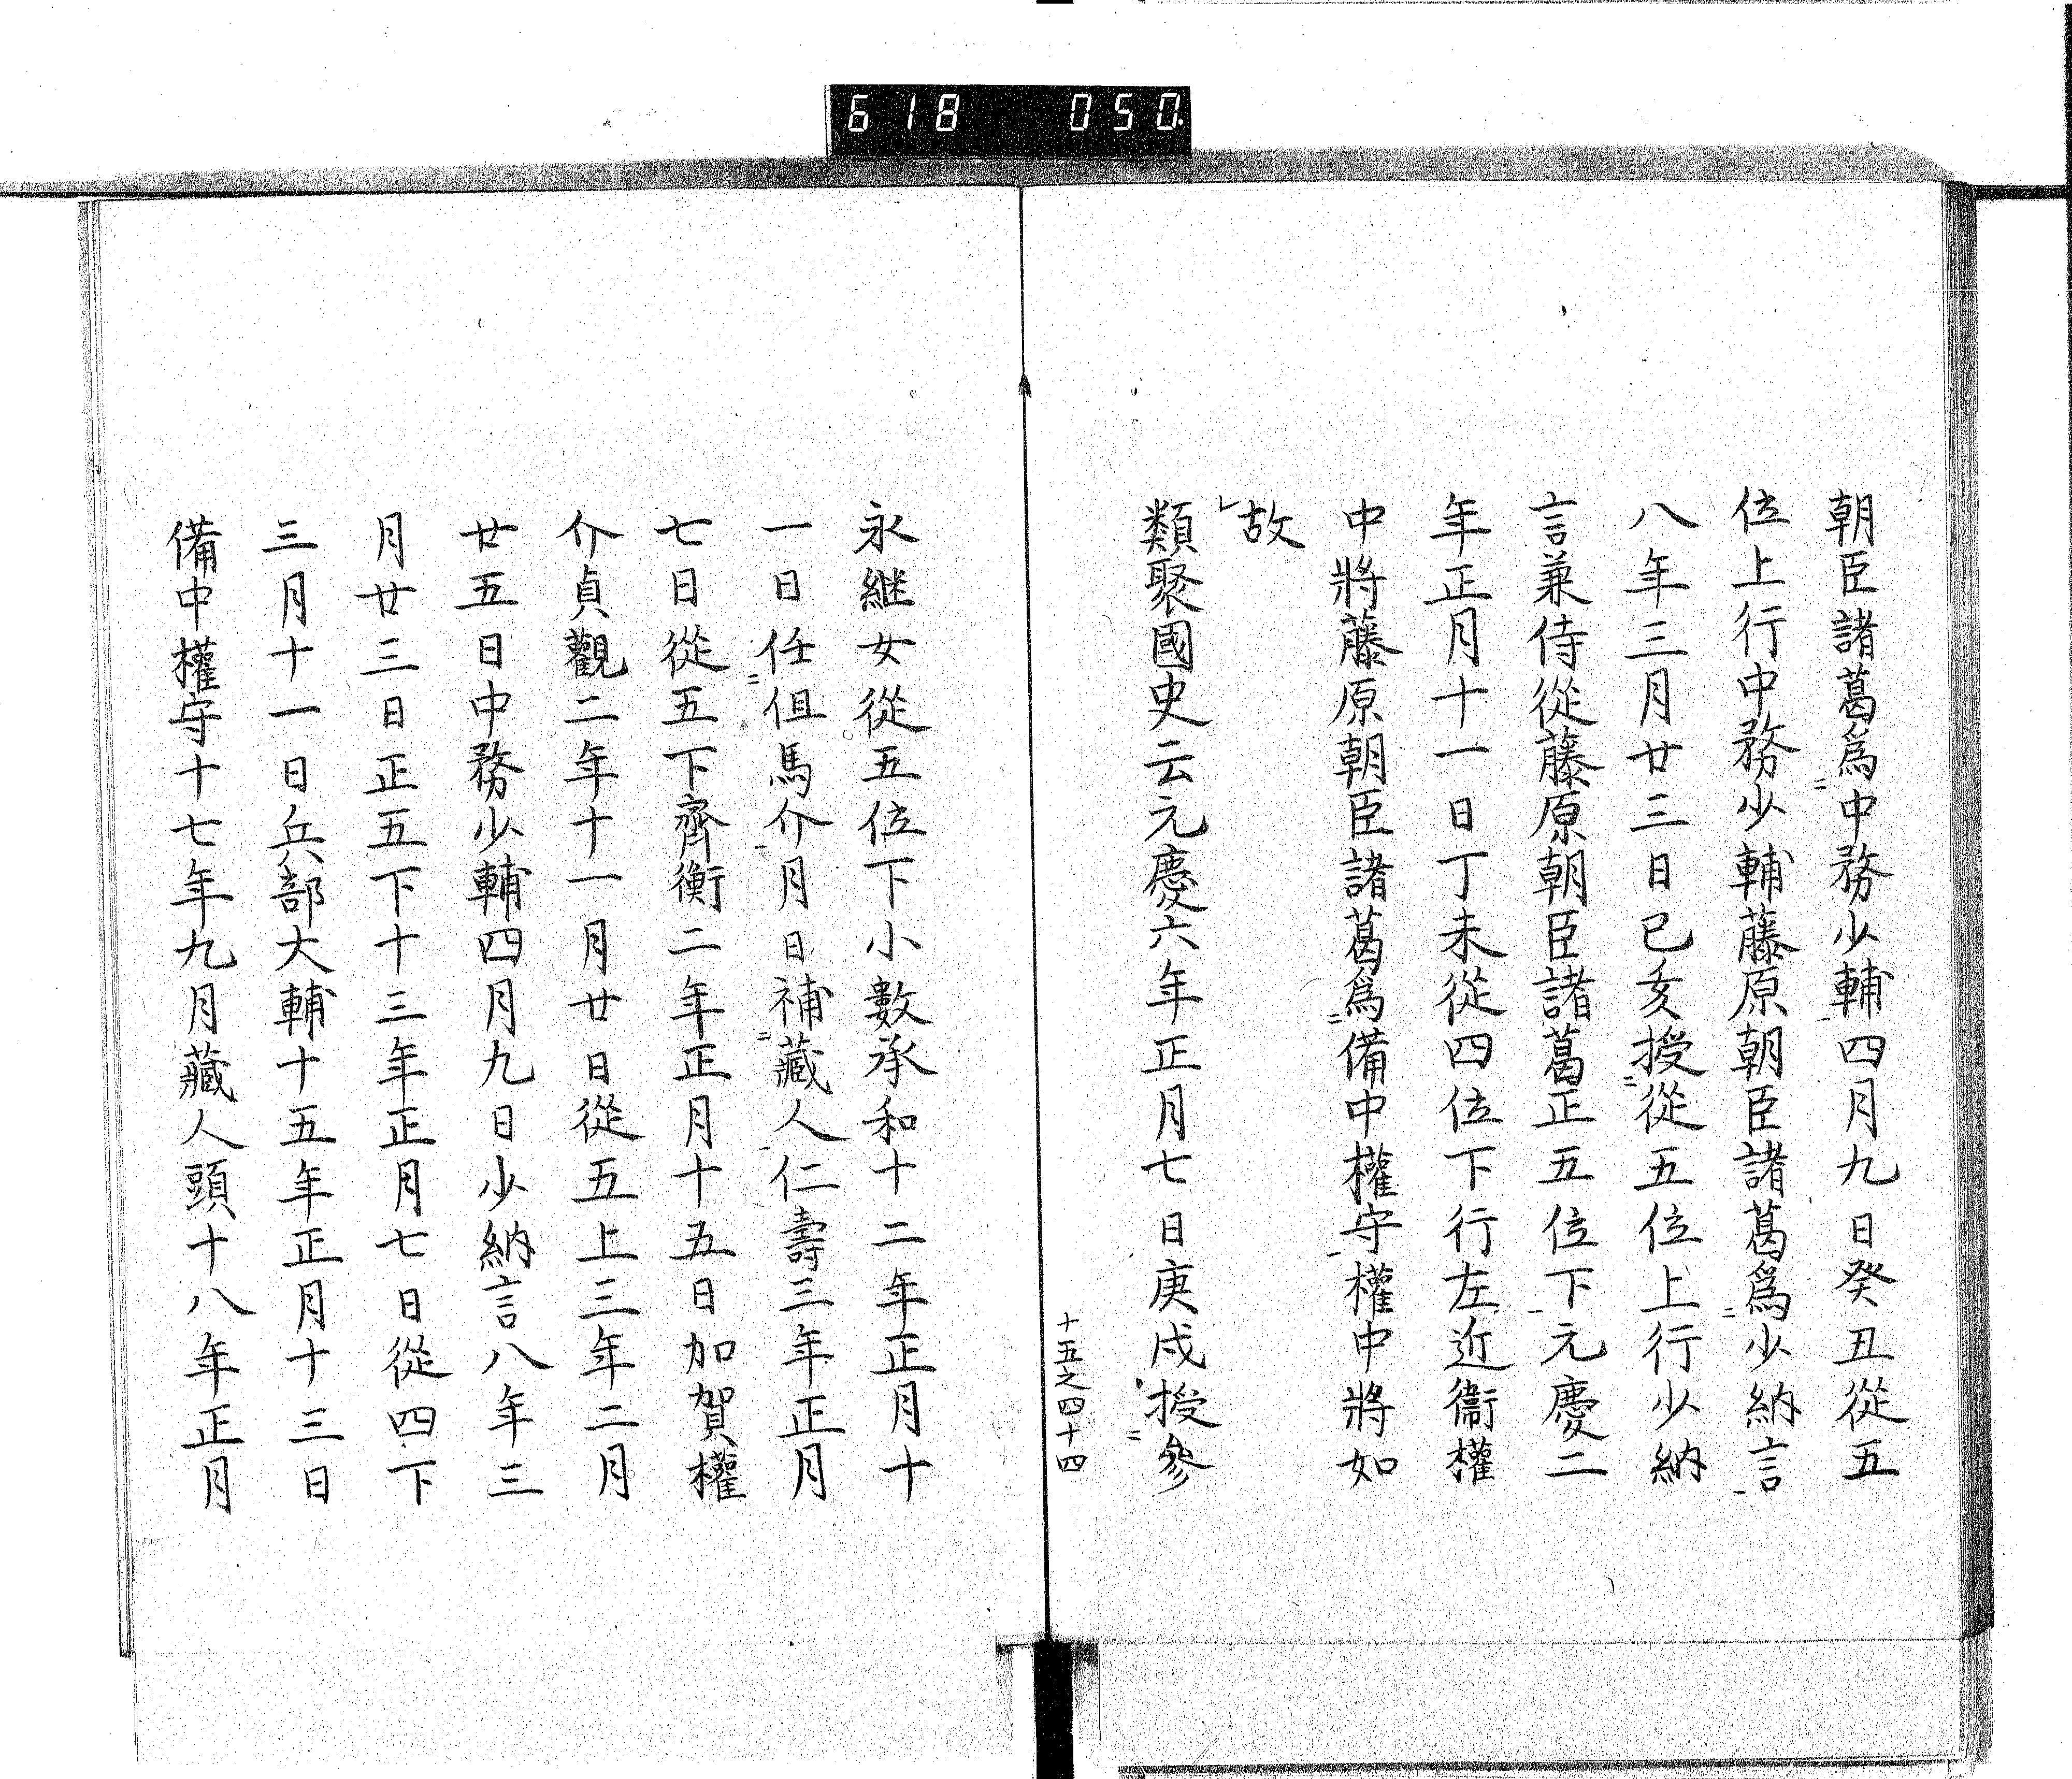 618 050
朝臣諸葛爲中務少輔四月九日癸丑從五
位上行中務少輔藤原朝臣諸葛爲少納言
八年三月廿三日已亥授從五位上行少納
言兼侍從藤原朝臣諸葛正五位下元慶二
年正月十一日丁未從四位下行左近衞權
中將藤原朝臣諸葛爲備中權守權中將如
故
類聚國史云元慶六年正月七日庚戌授參
十五之四十四
永継女從五位下小數承和十二年正月十
一日任但馬介月日補藏人仁壽三年正月
七日從五下齊衡二年正月十五日加賀權
介貞觀二年十一月廿日從五上三年二月
廿五日中務少輔四月九日少納言八年三
月廿三日正五下十三年正月七日從四下
三月十一日兵部大輔十五年正月十三日
備中權守十七年九月藏人頭十八年正月